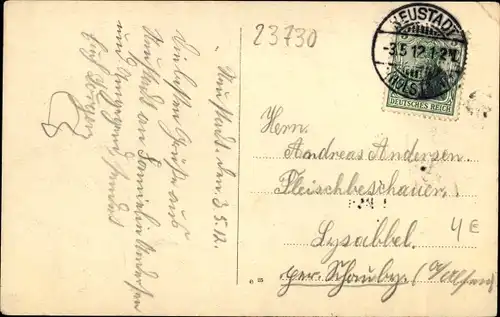 23730
NEUSTADT
-3.5.12.1-2N.
(HOLSTEIN)
DEUTSCHES REICH
Neustadt. den 3.5.12.
Die besten Grüße aus
Neustadt an Familie Andersen
und
Herrn.
Andreas Andersen
Fleischbeschauer.
Lysabbel.
per. Schauby. (a/Alsen)
4 €